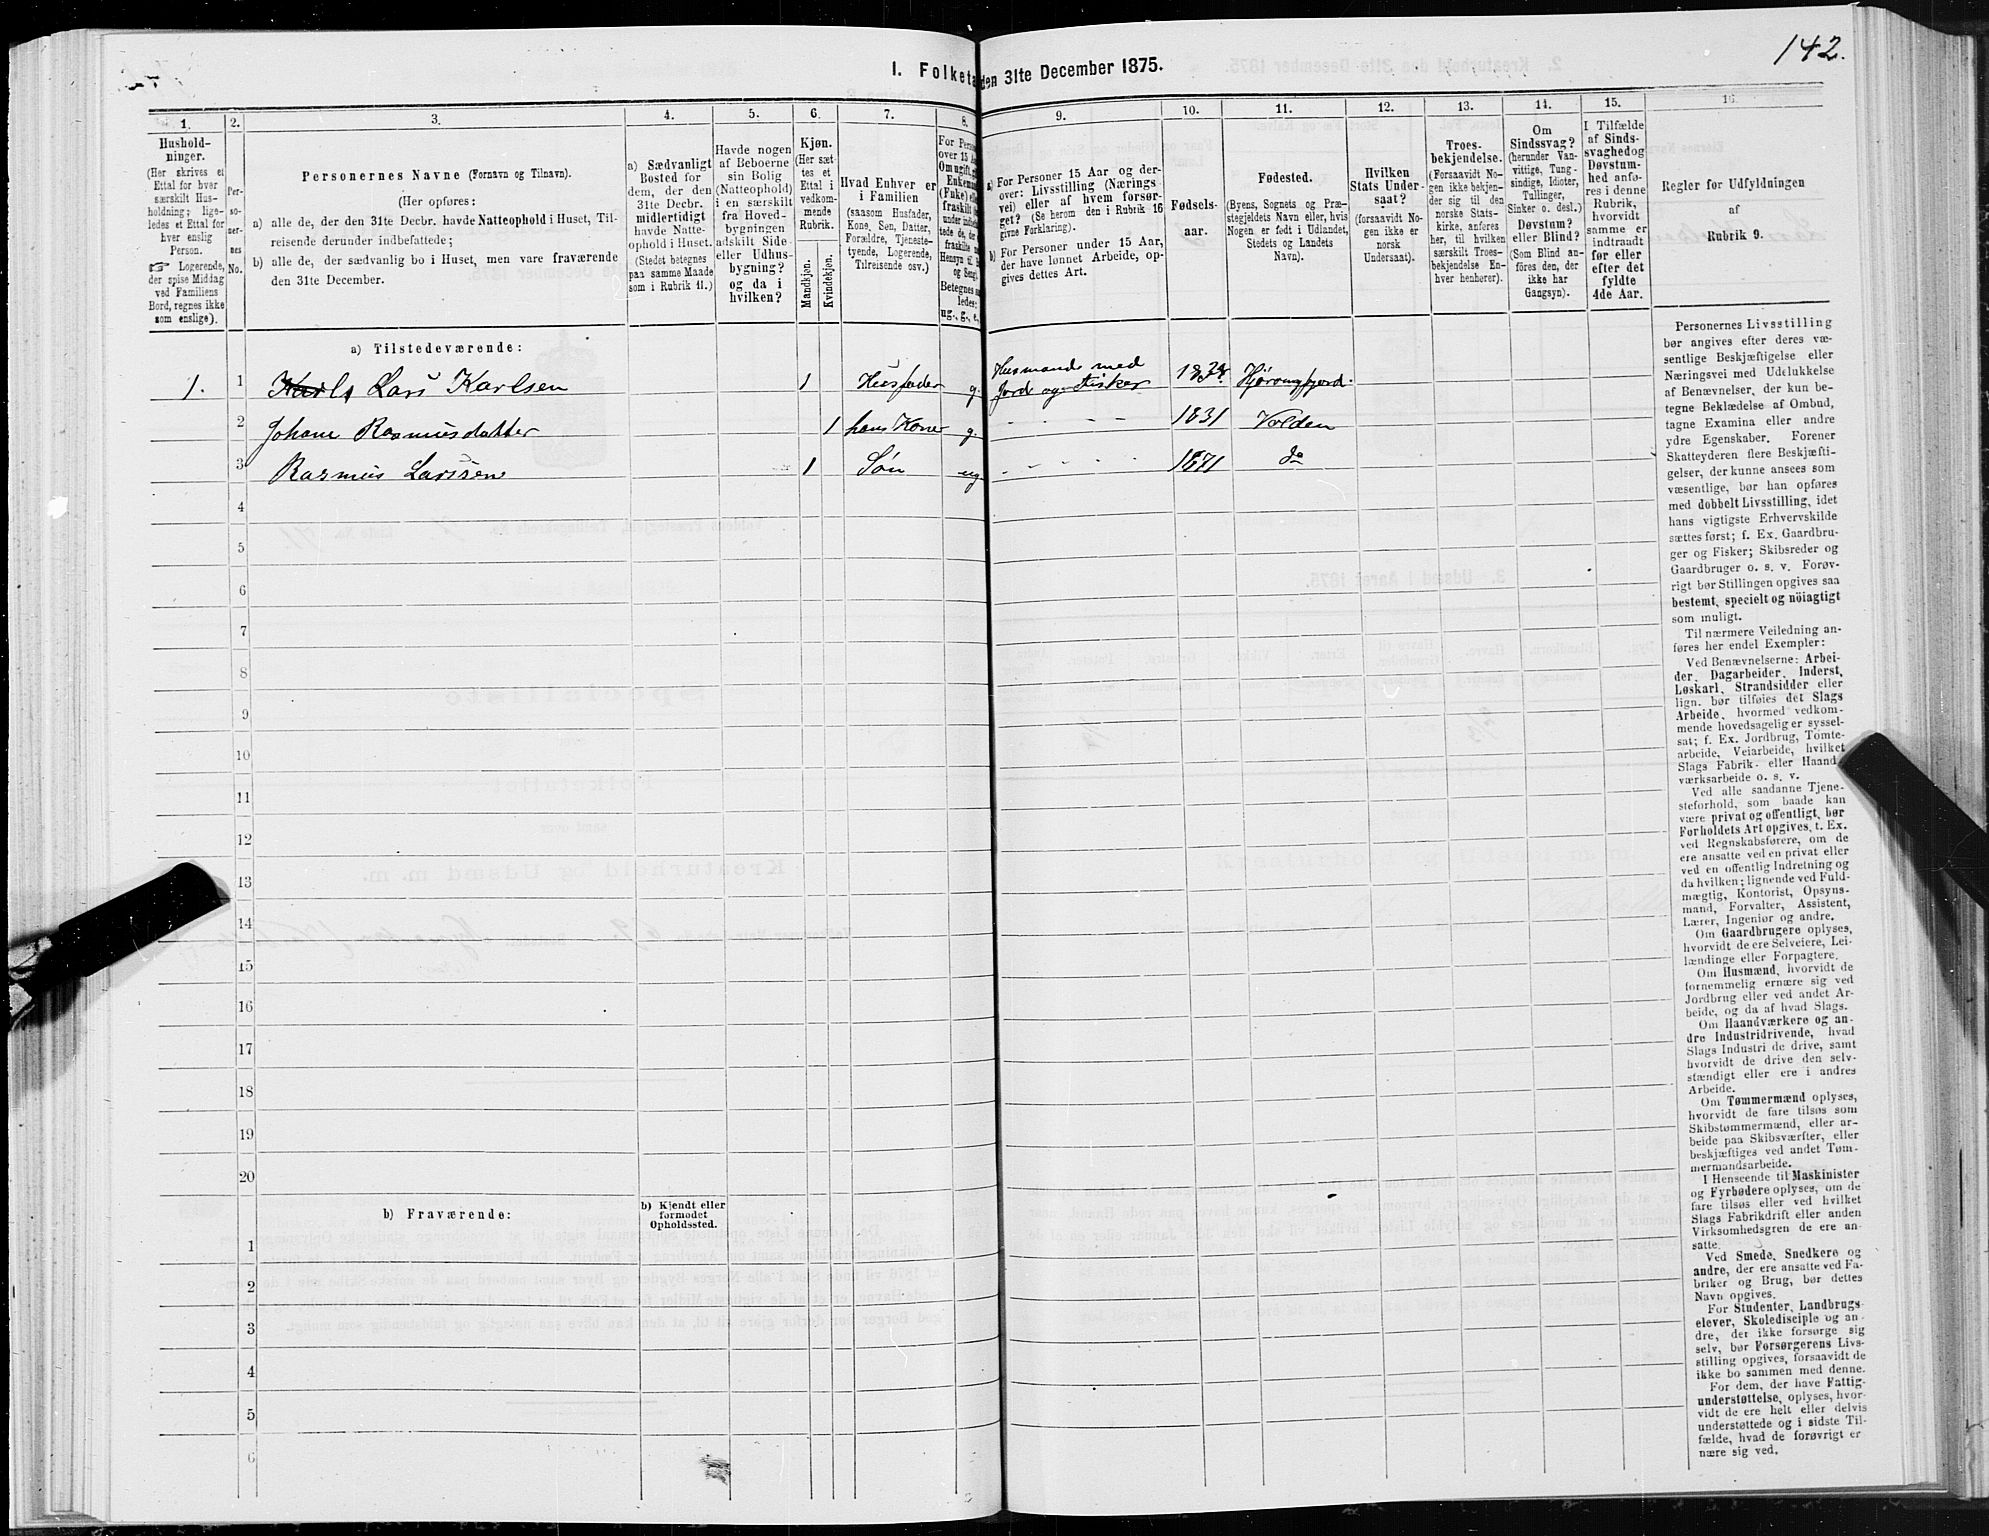 142.
1. Folketa
den 31te December 1875.
1.
2.
3.
4.
5.
6.
7.
8.
9.
10.
11.
12.
13.
14.
15.
16.
Hushold-
ninger.
(Her skrives et
Ettal for hver
særskilt Hus-
holdning; lige-
ledes et Ettal for
hver enslig
Person.
☞ Logerende,
der spise Middag
ved Familiens
Bord, regnes ikke
som enslige).
Per-
so-
ner-
nes
No.
Personernes Navne (Fornavn og Tilnavn).
(Her opføres:
a) alle de, der den 31te Decbr. havde Natteophold i Huset, Til-
reisende derunder indbefattede;
b) alle de, der sædvanlig bo i Huset, men vare fraværende
den 31te December.
a) Sædvanligt
Bosted for
dem, der den
31te Decbr.
midlertidigt
havde Natte-
ophold i Huset.
(Stedet betegnes
paa samme Maade
som i Rubrik 11.)
Havde nogen
af Beboerne
sin Bolig
(Natteophold)
i en særskilt
fra Hoved-
bygningen
adskilt Side-
eller Udhus-
bygning?
og da i
hvilken?
Kjøn.
(Her sæt-
tes et
Ettal i
vedkom-
mende
Rubrik.
Mandkjøn.
Kvindekjøn.
Hvad Enhver er
i Familien
(saasom Husfader,
Kone, Søn, Datter,
Forældre, Tjeneste-
tyende, Logerende,
Tilreisende osv.)
For Perso
over 15 Aa
Om ugift, gi
Enkema
(Enke) elle
fraskilt
under indbefat-
tede de, der
fraskilte
Hensyn til B
og Seng
Betegnes saa
ledes:
ug., g., e.,
a) For Personer 15 Aar og der-
over: Livsstilling (Nærings
vei) eller af hvem forsør-
get? (Se herom den i Rubrik 16
givne Forklaring).
b) For Personer under 15 Aar,
der have lønnet Arbeide, op-
gives dettes Art.
Fødsels-
aar.
Fødested.
(Byens, Sognets og Præ-
stegjeldets Navn eller, hvis
Nogen er født i Udlandet,
Stedets og Landets
Navn).
Hvilken
Stats Under-
saat?
(forsaavidt No-
gen ikke er
norsk
Undersaat).
Troes-
bekjendelse.
(Forsaavidt No-
gen ikke bekjen-
der sig til den
norske Stats-
kirke, anføres
her, til hvilken
særskilt Troes-
bekjendelse En-
hver henhører).
Om
Sindssvag?
(herunder Van-
vittige, Tung-
sindige, Idioter,
Tullinger,
Sinker o. desl.)
Døvstum?
eller Blind?
(Som Blind an-
føres den, der
ikke har
Gangsyn).
I Tilfælde
af Sinds-
svaghed og
Døvstum-
hed anfø-
res i denne
Rubrik,
hvorvidt
samme er
indtraadt
før eller
efter det
fyldte
4de Aar.
Regler før Udfyldningen
af
Rubrik 9.
a) Tilstedeværende:
1. 1 Karls Lars Karlsen 1 Husfader g. Husmand med Jord og Fisker 1838 Hjørungfjord.
2 Johane Rasmusdatter 1 hans Kone g. - - - 1831 Volden
3 Rasmus Larssen 1 Søn ug - - - - - 1871 do
4
5
6
7
8
9
10
11
12
13
14
15
16
17
18
19
20
b) Fraværende:
b) Kjendt eller
formodet
Opholdssted.
1
2
3
4
5
6
Personernes Livsstilling
bør angives efter deres væ-
sentlige Beskjæftigelse eller
Næringsvei med Udelukkelse
af Benævnelser, der kun be-
tegne Beklædelse af Ombud,
tagne Examina eller andre
ydre Egenskaber. Forener
Skatteyderen flere Beskjæfti-
gelser, der kunne ansees som
væsentlige, bør han opføres
med dobbelt Livsstilling, idet
hans vigtigste Erhvervskilde
sættes først; f. Ex. Gaardbru-
ger og Fisker; Skibsreder og
Gaardbruger o. s. v. Forøv-
rigt bør Stillingen opgives saa
bestemt, specielt og nöiagtigt
som muligt.
Til nærmere Veiledning an-
føres her endel Exempler:
Ved Benævnelserne: Arbei-
der, Dagarbeider, Inderst,
Løskarl, Strandsidder eller
lign. bør tilføies det Slags
Arbeide, hvormed vedkom-
mende hovedsagelig er syssel-
sat; f. Ex. Jordbrug, Tømte-
arbeide, Veiarbeide, hvilket
Slags Fabrik- eller Haand-
værksarbeide o. s. v.
Ved alle saadanne Tjene-
steforhold, som baade kan
være privat og offentligt, bør
Forholdets Art opgives, t. Ex.
ved Regnskabsførere, om de
ere ansatte ved en privat eller
ved en offentlig Indretning og
da hvilken; lignende ved Fuld-
mægtig, Kontorist, Opsyns-
mand, Forvalter, Assistent,
Lærer, Ingeniør og andre.
Om Gaardbrugere oplyses,
hvorvidt de ere Selveiere, Lei-
lændinge eller Forpagtere.
Om Husmænd, hvorvidt de
fornemmelig ernære sig ved
Jordbrug eller ved andet Ar-
beide, og da af hvad Slags.
Om Haandværkere og an-
dre Industridrivende, hvad
Slags Industri de drive, samt
hvorvidt de drive den selv-
stændigt eller ere i andres
Arbeide.
Om Tømmermænd oplyses,
hvorvidt de fare tilsøs som
Skibstømmermænd, eller ar-
beide paa Skibsværfter, eller
beskjæftiges ved andet Tøm-
mermandsarbeide.
I Henseende til Maskinister
og Fyrbødere oplyses, om de
fare tilsøs eller ved hvilket
Slags Fabrikdrift eller anden
Virksomhedsgren de ere an-
satte.
Ved Smede, Snedkere og
andre, der ere ansatte ved Fa-
briker og Brug, bør dettes
Navn opgives.
For Studenter, Landbrugs-
elever, Skoledisciple og an-
dre, der ikke forsørge sig
selv, bør Forsørgerens Livs-
stilling opgives, forsaavidt de
ikke bo sammen med denne.
For dem, der have Fattig-
understøttelse, oplyses, hvor-
vidt de ere helt eller delvis
understøttede og i sidste Til-
fælde, hvad de forøvrigt er-
nære sig ved.